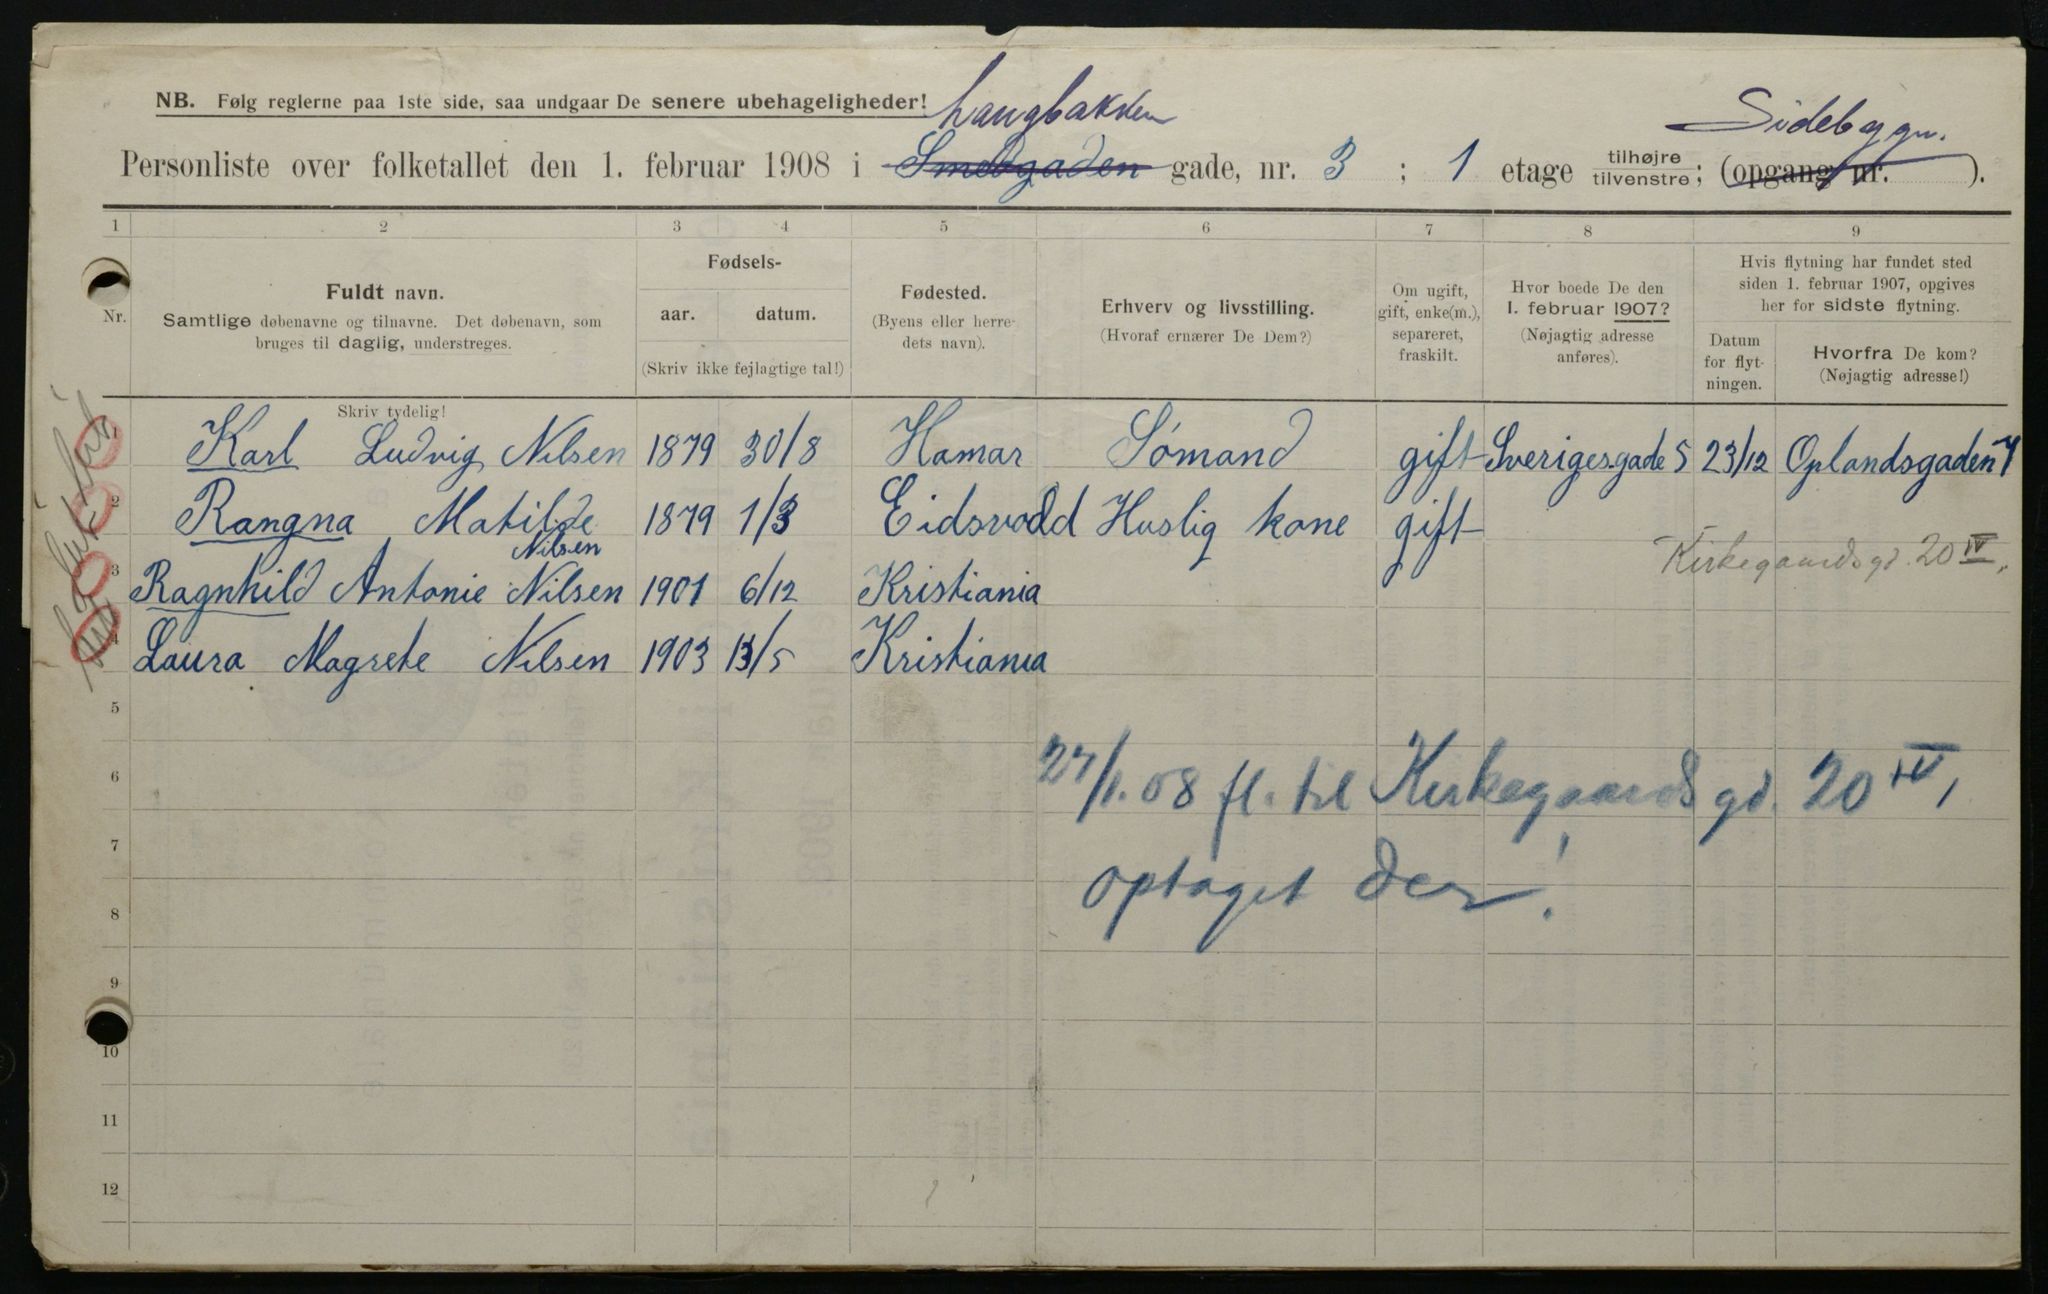 NB. Følg reglerne paa 1ste side, saa undgaar De senere ubehageligheder!
Langbakken
Sidebygn.
Personliste over folketallet den 1. februar 1908 i Smedgaden gade, nr. 3 ; 1 etage tilhøjre tilvenstre; (opgang nr. ).
1 2 3 4 5 6 7 8 9
Nr.
Fuldt navn.
Samtlige døbenavne og tilnavne. Det døbenavn, som
bruges til daglig, understreges.
Fødsels-
aar. datum.
(Skriv ikke fejlagtige tal!)
Fødested.
(Byens eller herre-
dets navn).
Erhverv og livsstilling.
(Hvoraf ernærer De Dem?)
Om ugift,
gift, enke(m.),
separeret,
fraskilt.
Hvor boede De den
1. februar 1907?
(Nøjagtig adresse
anføres).
Hvis flytning har fundet sted
siden 1. februar 1907, opgives
her for sidste flytning.
Datum
for flyt-
ningen.
Hvorfra De kom?
(Nøjagtig adresse!)
Skriv tydelig!
1 Karl Ludvig Nilsen 1879 30/8 Hamar Sømand gift Sverigesgade 5 23/12 Oplandsgaden 7
2 Rangna Matilde Nilsen 1879 1/3 Eidsvold Huslig kone gift
Kirkegaardsgd. 20 IV,
3 Ragnhild Antonie Nilsen 1901 6/12 Kristiania
4 Laura Magrete Nilsen 1903 13/5 Kristiania
5
6
27/1.08 fl. til Kirkegaardsgd. 20 IV,
7
optaget der!
8
9
10
11
12